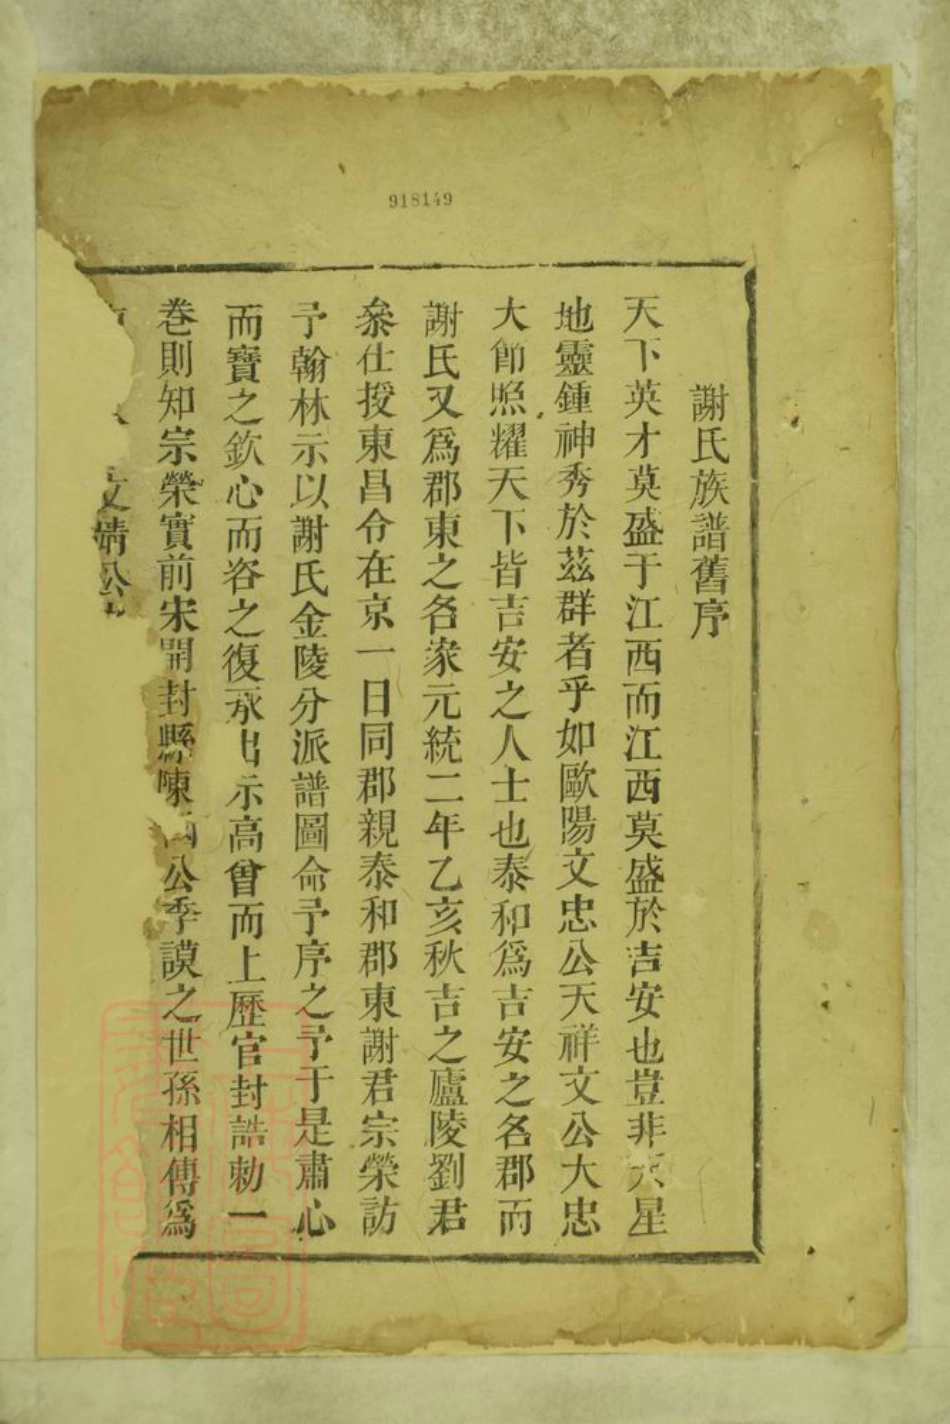 918149
謝氏族譜舊序
天下英才莫盛于江西而江西莫盛於吉安也豈非天星
地靈鍾神秀於茲群者乎如歐陽文忠公天祥文公大忠
大節照耀天下皆吉安之人士也泰和爲吉安之名郡而
謝氏又爲郡東之名家元統二年乙亥秋吉之廬陵劉君
叅仕授東昌令在京一日同郡親泰和郡東謝君宗榮訪
予翰林示以謝氏金陵分派譜圖命予序之予于是肅心
而寶之欽心而咨之復承出示高曾而上歷官封誥勅一
卷則知宗榮實前宋開封縣陳公季謨之世孫相傳爲
文靖公